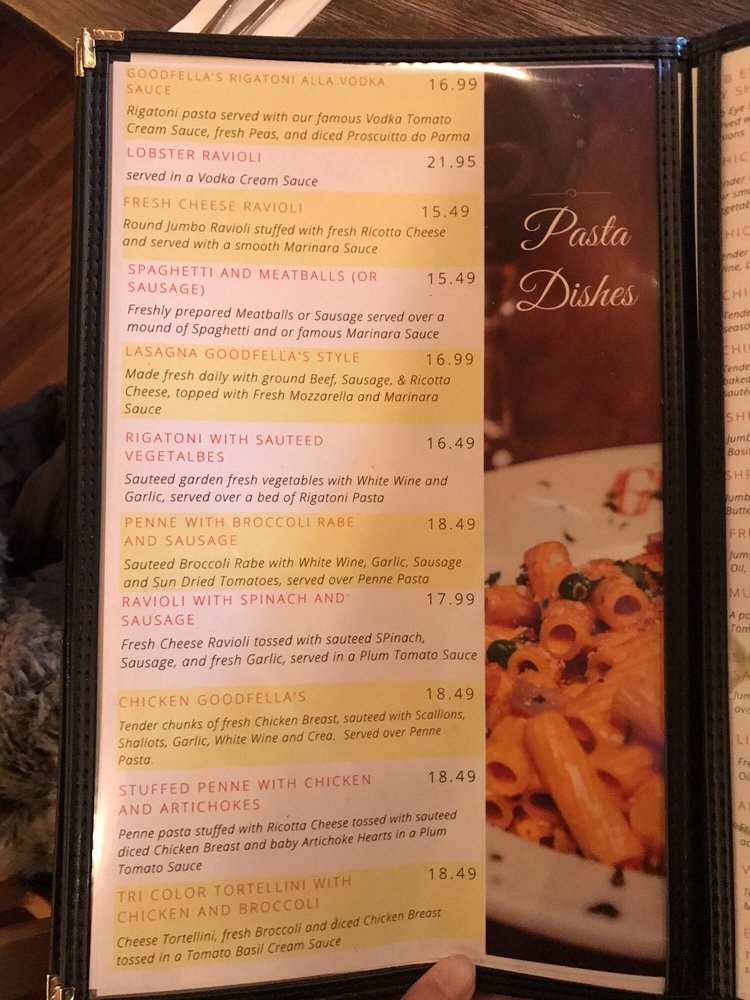 GOODFELLA'S RIGATONI ALLA VODKA
SAUCE
16.99
Rigatoni pasta served with our famous Vodka Tomato
Cream Sauce, fresh Peas, and diced Proscuitto do Parma
LOBSTER RAVIOLI
21.95
served in a Vodka Cream Sauce
FRESH CHEESE RAVIOLI
15.49
Round Jumbo Ravioli stuffed with fresh Ricotta Cheese
and served with a smooth Marinara Sauce
SPAGHETTI AND MEATBALLS (OR
SAUSAGE)
15.49
Freshly prepared Meatballs or Sausage served over a
mound of Spaghetti and or famous Marinara Sauce
LASAGNA GOODFELLA'S STYLE
16.99
Made fresh daily with ground Beef, Sausage, & Ricotta
Cheese, topped with Fresh Mozzarella and Marinara
Sauce
RIGATONI WITH SAUTEED
VEGETALBES
16.49
Sauteed garden fresh vegetables with White Wine and
Garlic, served over a bed of Rigatoni Pasta
PENNE WITH BROCCOLI RABE
AND SAUSAGE
18.49
Sauteed Broccoli Rabe with White Wine, Garlic, Sausage
and Sun Dried Tomatoes, served over Penne Pasta
RAVIOLI WITH SPINACH AND
SAUSAGE
17.99
Fresh Cheese Ravioli tossed with sauteed SPinach,
Sausage, and fresh Garlic, served in a Plum Tomato Sauce
CHICKEN GOODFELLA'S
18.49
Tender chunks of fresh Chicken Breast, sauteed with Scallions,
Shallots, Garlic, White Wine and Crea. Served over Penne
Pasta.
STUFFED PENNE WITH CHICKEN
AND ARTICHOKES
18.49
Penne pasta stuffed with Ricotta Cheese tossed with sauteed
diced Chicken Breast and baby Artichoke Hearts in a Plum
Tomato Sauce
TRI COLOR TORTELLINI WITH
CHICKEN AND BROCCOLI
18.49
Cheese Tortellini, fresh Broccoli and diced Chicken Breast
tossed in a Tomato Basil Cream Sauce
Pasta
Dishes
G